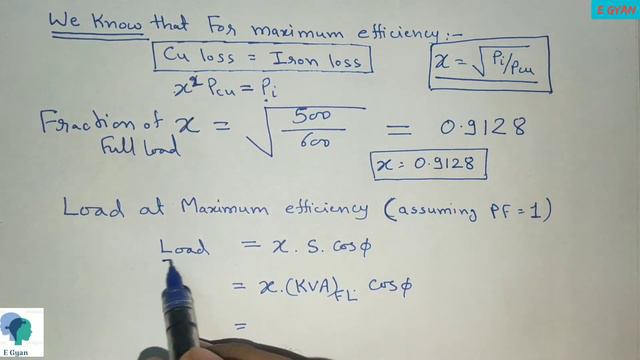 E GYAN
We Know that For maximum efficiency:-
Cu loss = Iron loss
x = √Pi/Pcu
x² Pcu = Pi
Fraction of x = √500/600 = 0.9128
Full load
x = 0.9128
Load at Maximum efficiency (assuming PF = 1)
Load = x . S. cosϕ
= x.(KVA)FL. cosϕ
=
E Gyan